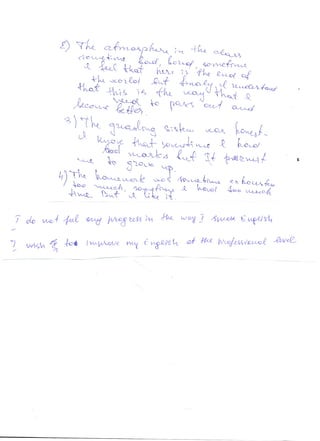 2) The atmosphere in the class
sometime bad, boring, sometime
I feel that here is the end of
the world but finaly I understood
that this is the way that I
need to pass out and
become better.
3) The grading sistem was honest.
I know that sometime I have
bad marks but It
me to grow up.
4) The homework was sometime exhousted
too much, sometime I have too much
time But I like it
I do not ful any progress in the way I speek English
I wish to improve my English at the professional level